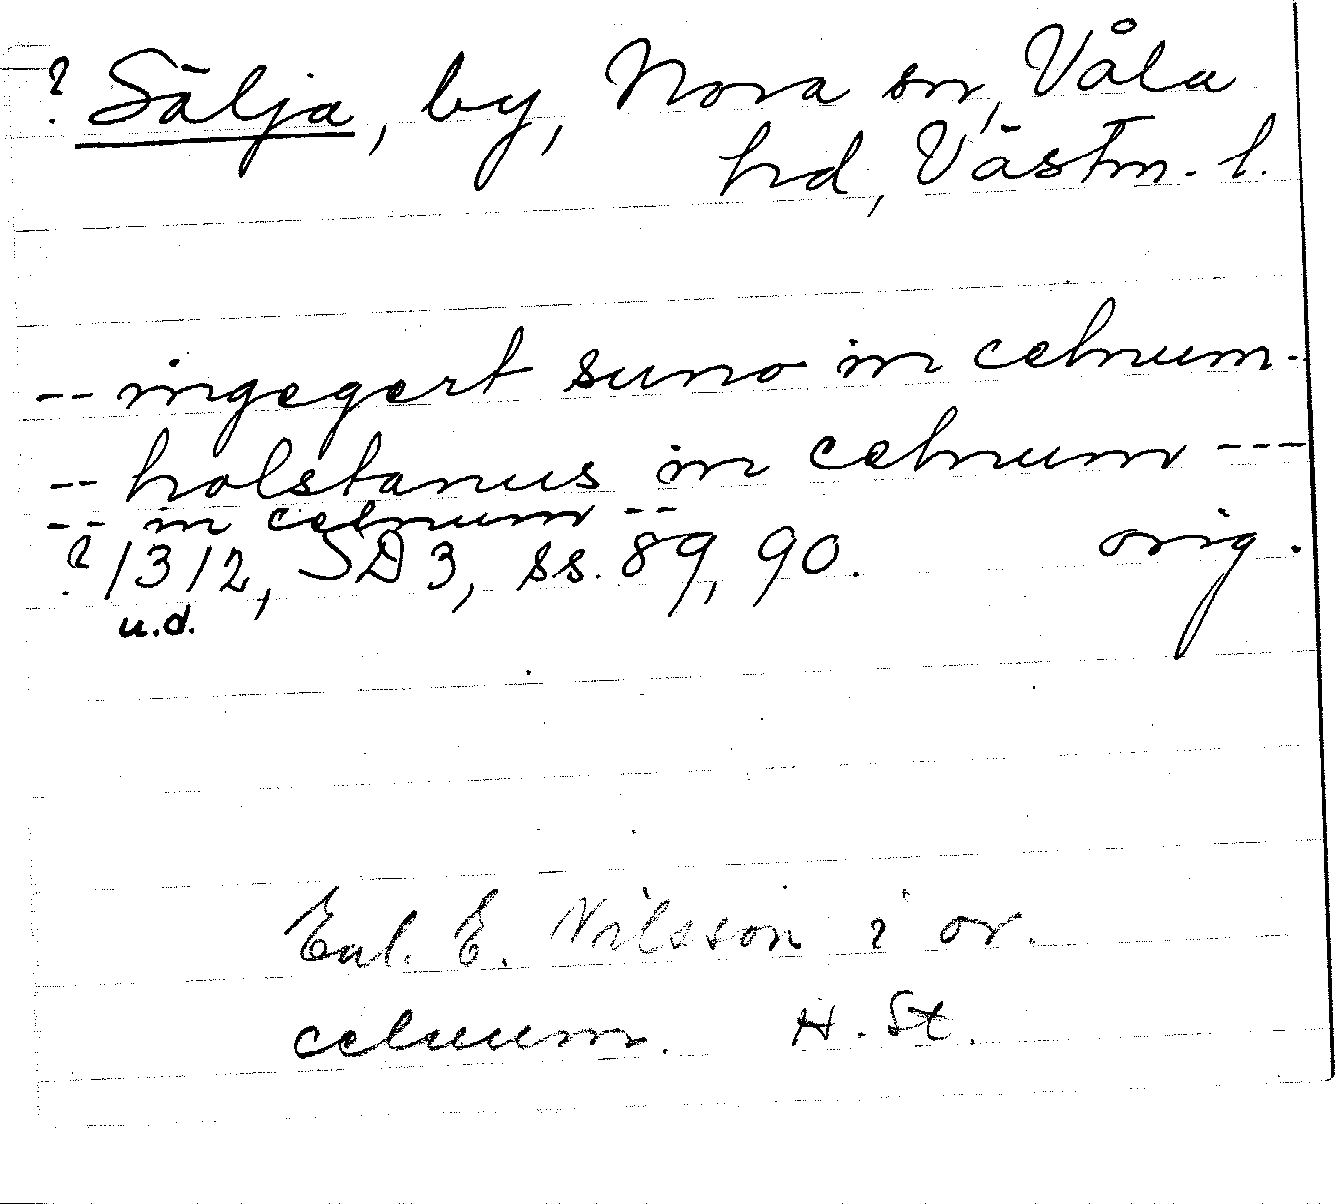 ? Sälja, by, Nora sn, Våla
hd, Västm. l.
-- ingegert suno in celnum.
-- holstanus in celnum ---
-- in celnum --
? 1312, SD3, ss. 89, 90. orig.
u.d.
Enl. E. Nilsson i or.
celuum. H. St.